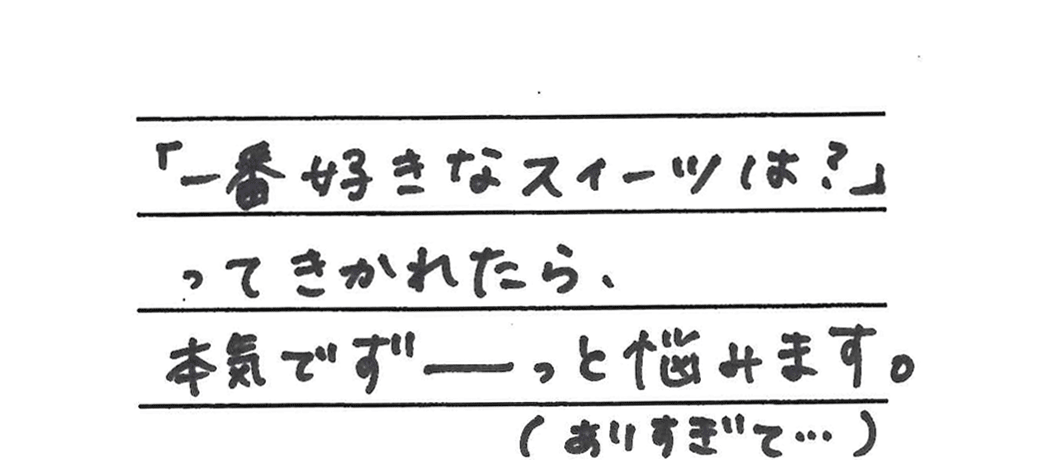 「一番好きなスイーツは？」
ってきかれたら、
本気でずーーっと悩みます。
（ありすぎて…）